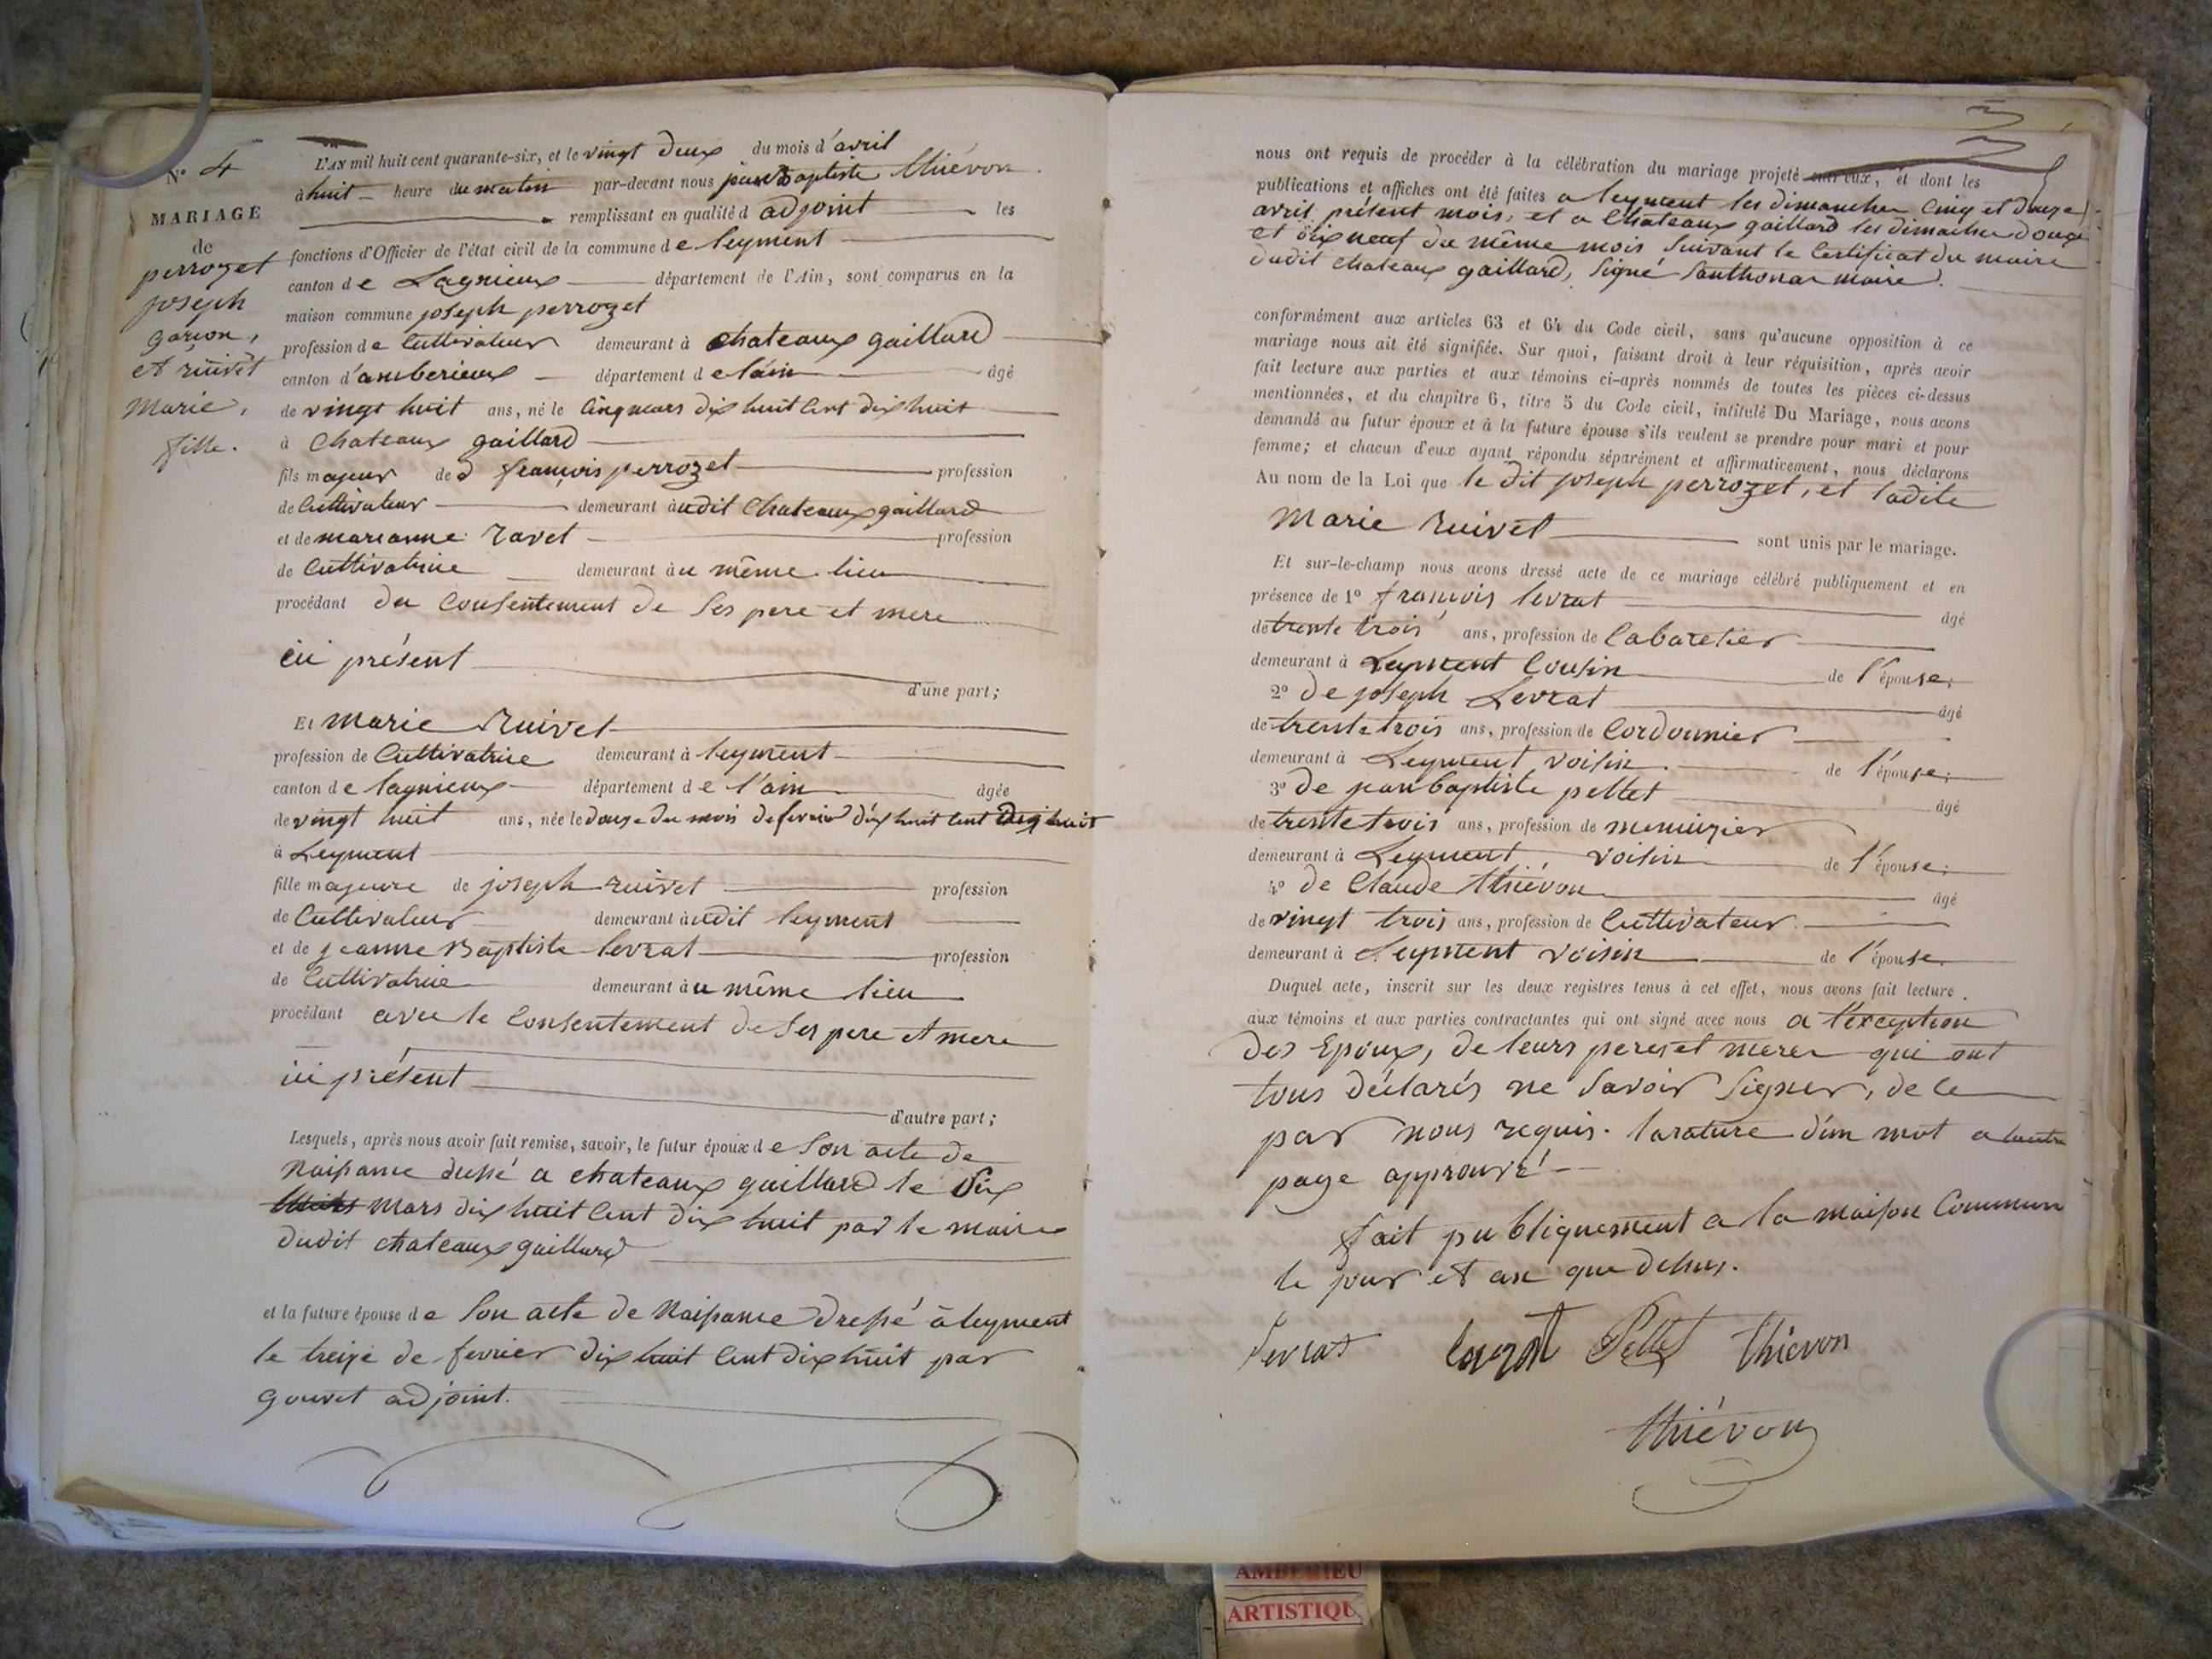 N° 4
MARIAGE
de
perrozet
joseph
garçon,
et ruivet
marie,
fille.
L'AN mil huit cent quarante-six, et le vingt deux du mois d'avril
à huit heure du matin par-devant nous jean Baptiste thiévon
remplissant en qualité d adjoint les
fonctions d'Officier de l'état civil de la commune de leyment
canton de Lagnieux département de l'Ain, sont comparus en la
maison commune joseph perrozet
profession de Cultivateur demeurant à chateaux gaillard
canton d'amberieux département de l'ain âgé
de vingt huit ans, né le Cinq mars dix huit Cent dix huit
à Chateaux gaillard
fils majeur de d françois perrozet profession
de Cultivateur demeurant àudit Chateaux gaillard
et de marianne ravet profession
de Cultivatrice demeurant àu même lieu
procédant du Consentement de Ses pere et mere
ici présent
d'une part;
Et marie Ruivet
profession de Cultivatrice demeurant à leyment
canton de lagnieux département de l'ain âgée
de vingt huit ans, née le douze du mois de fevrier dix huit Cent Dix huit
à Leyment
fille majeure de joseph ruivet profession
de Cultivateur demeurant àudit leyment
et de jeanne Baptiste levrat profession
de Cultivatrice demeurant àu même lieu
procédant avec le Consentement de Ses pere et mere
ici présent
d'autre part;
Lesquels, après nous avoir fait remise, savoir, le futur époux de Son acte de
Naissance dressé a chateaux gaillard le Six
mars dix huit Cent dix huit par le maire
dudit chateaux gaillard
et la future épouse de Son acte de Naissance dressé à leyment
le treize de fevrier dix huit Cent dix huit par
gouvet adjoint.
nous ont requis de procéder à la célébration du mariage projeté entr'eux, et dont les
publications et affiches ont été faites a leyment les dimanches Cinq et douze
avril présent mois, et a Chateaux gaillard les dimanches douze
et dix neuf du même mois Suivant le Certificat du maire
dudit chateaux gaillard, Signé Santhonax maire.
conformément aux articles 63 et 64 du Code civil, sans qu'aucune opposition à ce
mariage nous ait été signifiée. Sur quoi, faisant droit à leur réquisition, après avoir
fait lecture aux parties et aux témoins ci-après nommés de toutes les pièces ci-dessus
mentionnées, et du chapitre 6, titre 5 du Code civil, intitulé Du Mariage, nous avons
demandé au futur époux et à la future épouse s'ils veulent se prendre pour mari et pour
femme; et chacun d'eux ayant répondu séparément et affirmativement, nous déclarons
Au nom de la Loi que le dit joseph perrozet, et ladite
Marie Ruivet sont unis par le mariage.
Et sur-le-champ nous avons dressé acte de ce mariage célébré publiquement et en
présence de 1° françois levrat âgé
de trente trois ans, profession de Cabaretier
demeurant à Leyment Cousin de l'épouse;
2° de joseph Levrat âgé
de trente trois ans, profession de Cordonnier
demeurant à Leyment voisin de l'épouse;
3° de jean baptiste pellet âgé
de trente trois ans, profession de menuizier
demeurant à Leyment, voisin de l'épouse;
4° de Claude thiévon âgé
de vingt trois ans, profession de Cultivateur
demeurant à Leyment voisin de l'épouse.
Duquel acte, inscrit sur les deux registres tenus à cet effet, nous avons fait lecture
aux témoins et aux parties contractantes qui ont signé avec nous a l'exception
des Epoux, de leurs peres et meres qui ont
tous déclarés ne Savoir Signer, de ce
par nous requis. la rature d'un mot a lautre
page approuvé
fait publiquement a la maison Commun
le jour et an que dessus.
Levrat Levrat Pellet thievon
thiévon
AMBERIEU
ARTISTIQU